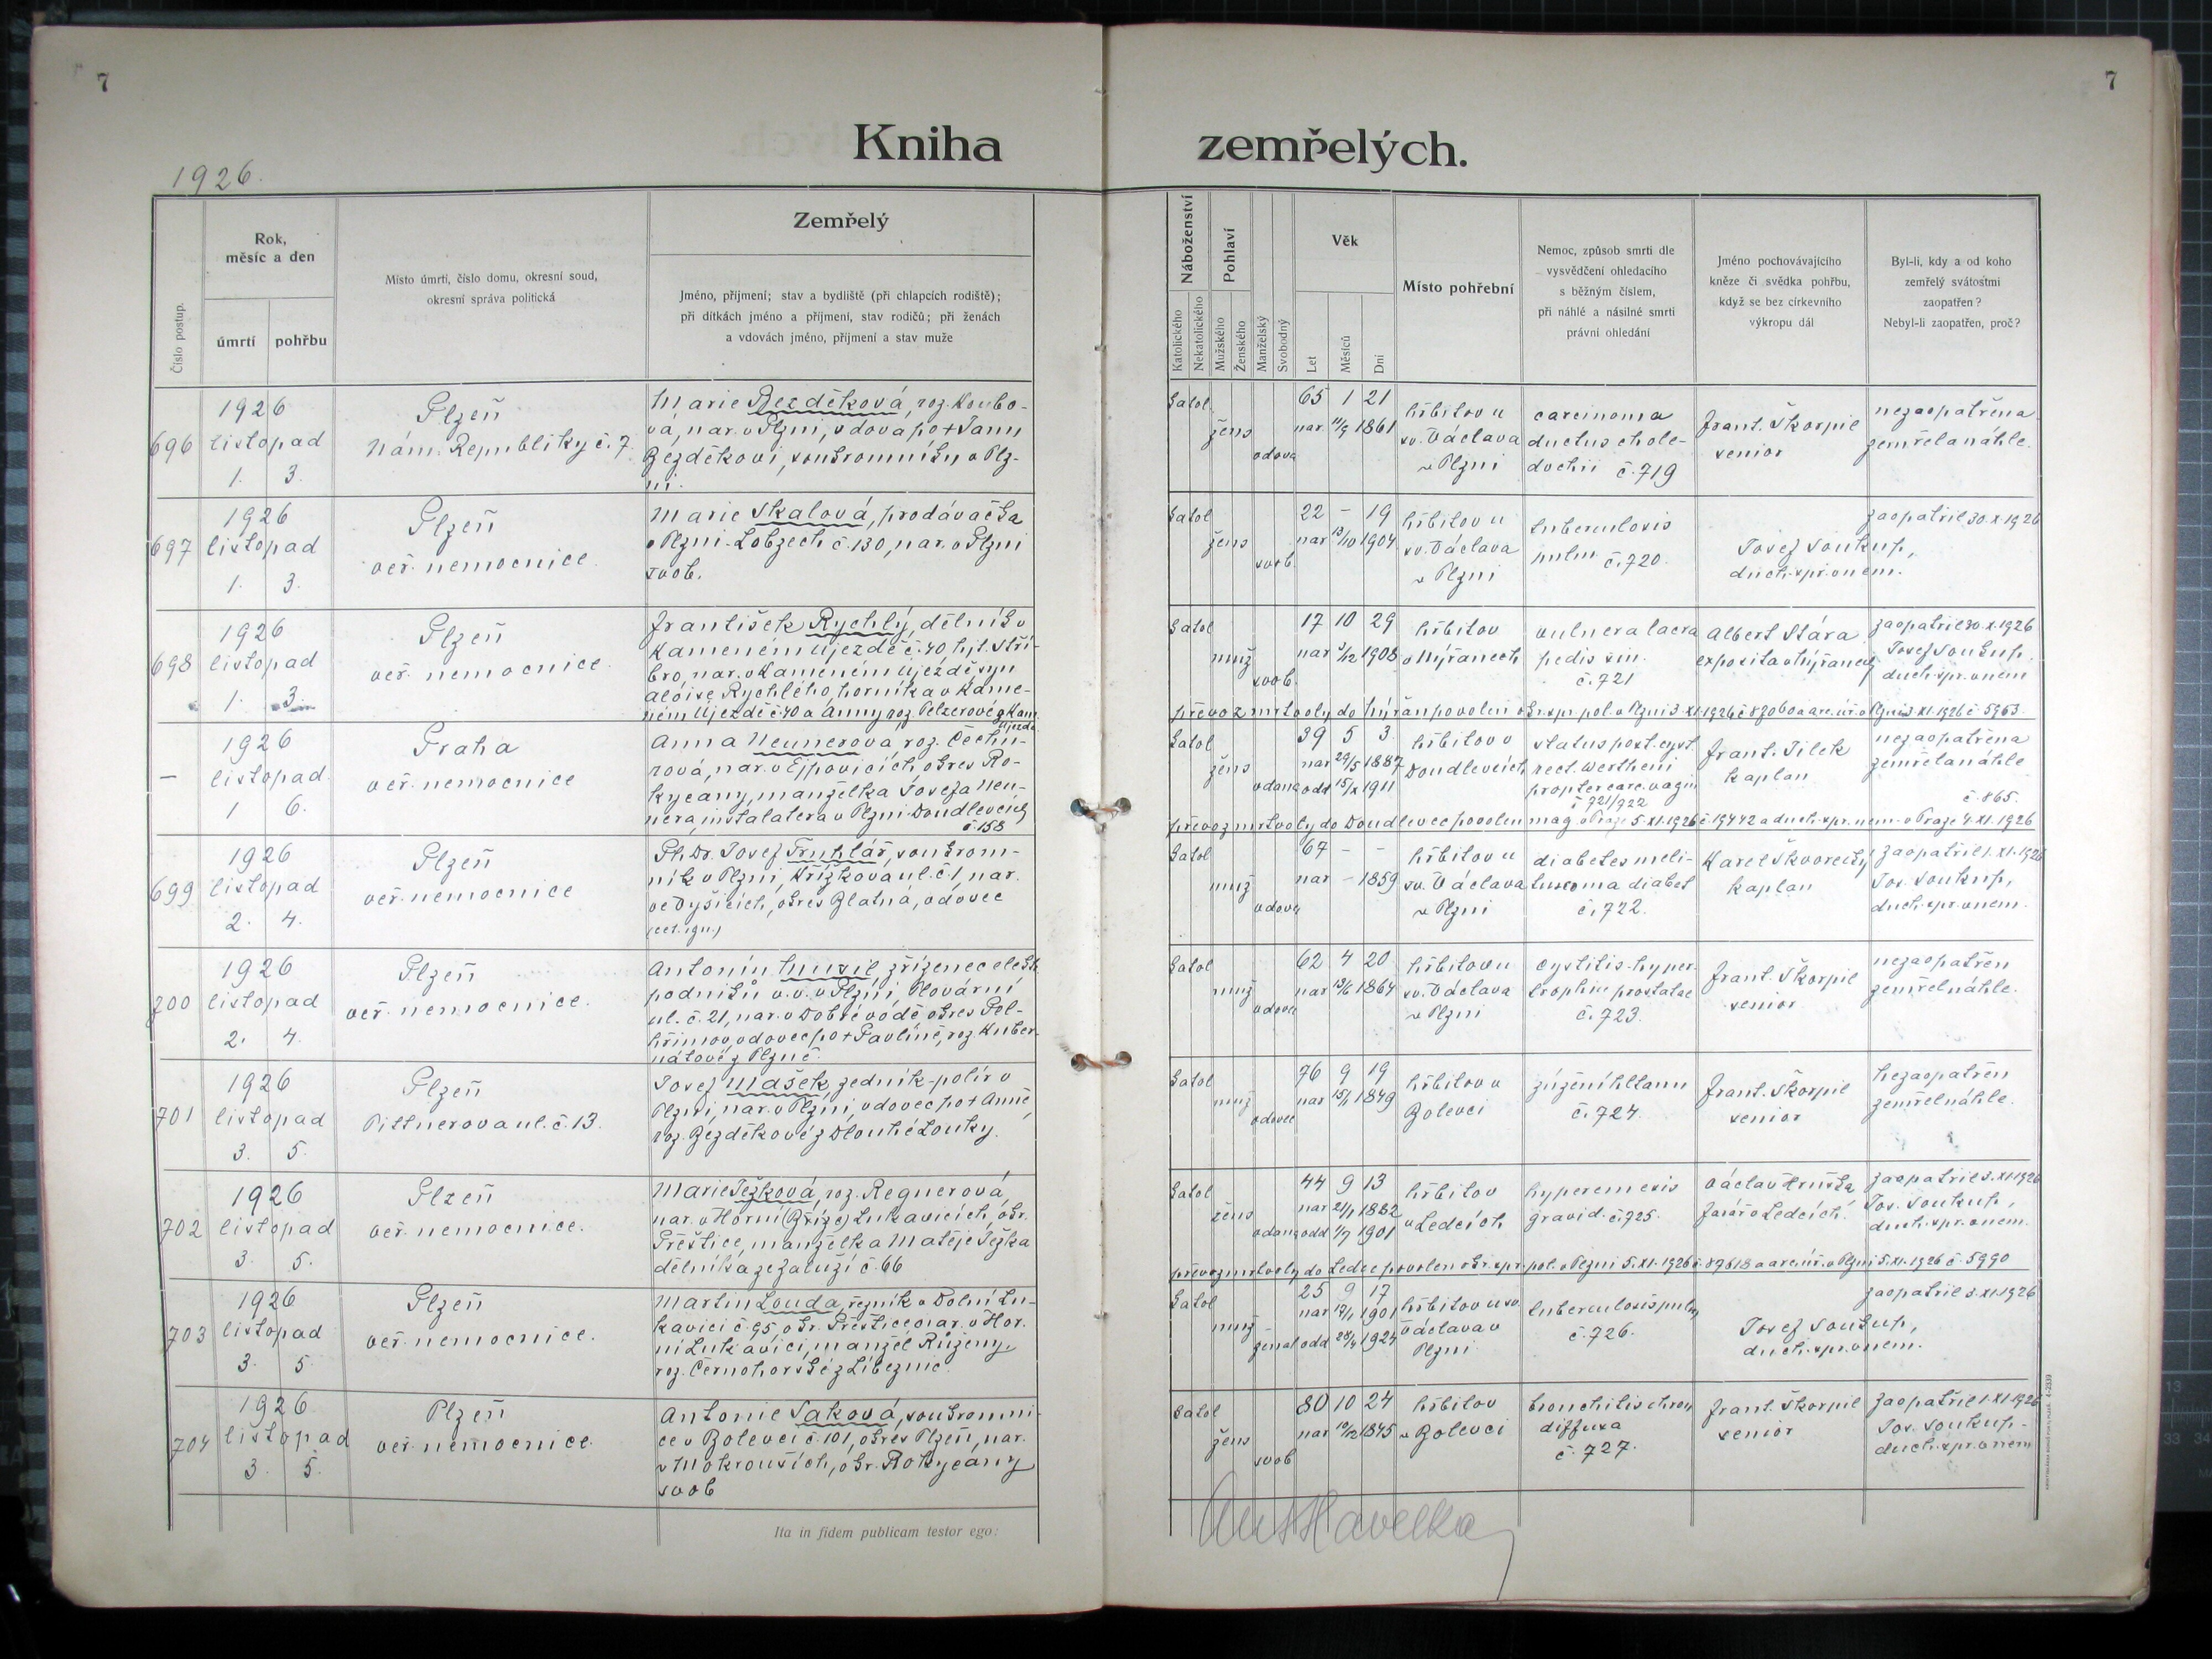 7
7
Kniha zemřelých.
1926.
Číslo postup.
Rok,
měsíc a den
úmrtí
pohřbu
Místo úmrtí, číslo domu, okresní soud,
okresní správa politická
Zemřelý
Jméno, příjmení; stav a bydliště (při chlapcích rodiště);
při dítkách jméno a příjmení, stav rodičů; při ženách
a vdovách jméno, příjmení a stav muže
Náboženství
Katolického
Nekatolického
Pohlaví
Mužského
Ženského
Manželský
Svobodný
Věk
Let
Měsíců
Dní
Místo pohřební
Nemoc, způsob smrti dle
vysvědčení ohledacího
s běžným číslem,
při náhlé a násilné smrti
právní ohledání
Jméno pochovávajícího
kněze či svědka pohřbu,
když se bez církevního
výkropu dál
Byl-li, kdy a od koho
zemřelý svátostmi
zaopatřen?
Nebyl-li zaopatřen, proč?
696
1926
listopad
1. 3.
Plzeň
Nám. Republiky č. 7.
Marie Bezděková, roz. Koubo-
vá, nar. v Plzni, vdova po + Janu
Bezděkovi, soukromníku v Plz-
ni.
katol.
žens
vdova
65 1 21
nar. 11/9 1861
hřbitov u
sv. Václava
v Plzni
carcinoma
ductus chole-
dochii č. 719
Frant. Škorpil
senior
nezaopatřena
zemřela náhle.
697
1926
listopad
1. 3.
Plzeň
veř. nemocnice.
Marie Skalová, prodavačka
v Plzni-Lobzech č. 130, nar. v Plzni
svob.
katol
žens
svob.
22 - 19
nar 13/10 1904
hřbitov u
sv. Václava
v Plzni
tuberculosis
pulm č. 720.
zaopatřil 30.X.1926
Josef Soukup,
duch. spr. v nem.
698
1926
listopad
1. 3.
Plzeň
veř. nemocnice.
František Rychlý, dělník v
Kameném Újezdě č. 40 hejt. Stří-
bro, nar. v Kameném Újezdě, syn
Aloise Rychlého, horníka v Kame-
ném Újezdě č. 40 a Anny roz. Pelzerové z Kam.
Újezda
katol
muž
svob.
17 10 29
nar 3/12 1908
hřbitov
v Nýřanech
vulnera lacra
pedis sin.
č. 721
Albert Stára
exposita v Nýřanech
zaopatřil 30.X.1926
Josef Soukup.
duch. spr. v nem
převoz mrtvoly do Nýřan povolen okr. spr. pol. v Plzni 3.XI.1926 č. 87060 a arc. úř. v Plzni 3.XI.1926 č. 5963.
—
1926
listopad.
1 6.
Praha
veř. nemocnice
Anna Neunerová, roz. Čechu-
rová, nar. v Ejpovicích okres Ro-
kycany, manželka Josefa Neu-
nera, instalatéra v Plzni-Doudlevcích
č. 158
katol
žens
vdaná
39 5 3
nar 29/5 1887
odd 15/X 1911
hřbitov v
Doudlevcích
status post. cyst.
rect. Wertheim
propter carc. vagin
č. 721/922
Frant. Tilek
kaplan
nezaopatřena
zemřela náhle
č. 865.
převoz mrtvoly do Doudlevec povolen mag. v Praze 5.XI.1926 č. 19442 a duch. spr. nem. v Praze 4.XI.1926
699
1926
listopad
2. 4.
Plzeň
veř. nemocnice
Ph. Dr. Josef Truhlář, soukrom-
ník v Plzni, Křížkova ul. č. 1, nar.
ve Vyšicích, okres Blatná, vdovec
(cet. ign.)
katol
muž
vdovec
67 - -
nar - 1859
hřbitov u
sv. Václava
v Plzni
diabetes meli-
tus coma diabet
č. 722.
Karel Škvorecký
kaplan
zaopatřil 1.XI.1926
Jos. Soukup,
duch. spr. v nem.
700
1926
listopad
2. 4.
Plzeň
veř. nemocnice.
Antonín Musil, zřízenec elekt.
podniků v. v. v Plzni, Plovární
ul. č. 21, nar. v Dobré vodě okres Pel-
hřimov, vdovec po + Pavlíně, roz. Kuber-
nátové z Plzně.
katol
muž
vdovec
62 4 20
nar 13/6 1864
hřbitov u
sv. Václava
v Plzni
cystitis-hyper-
trophia prostatae
č. 723.
Frant. Škorpil
senior
nezaopatřen
zemřel náhle.
701
1926
listopad
3. 5.
Plzeň
Pittnerova ul. č. 13.
Josef Mašek, zedník-polír v
Plzni, nar. v Plzni, vdovec po + Anně,
roz. Bezděkové z Dlouhé Louky.
katol
muž
vdovec
76 9 19
nar 15/1 1849
hřbitov v
Bolevci
zúžení hltanu
č. 724.
Frant. Škorpil
senior
nezaopatřen
zemřel náhle.
702
1926
listopad
3. 5.
Plzeň
veř. nemocnice.
Marie Ježková, roz. Regnerová,
nar. v Horní (Bříze) Lukavicích, okr.
Přeštice, manželka Matěje Ježka
dělníka ze Zaluží č. 66
katol
žens
vdaná
44 9 13
nar 21/1 1882
odd 1/7 1901
hřbitov
v Ledcích
hyperemesis
gravid. č. 725.
Václav Hruška
farář v Ledcích.
zaopatřil 3.XI.1926
Jos. Soukup,
duch. spr. v nem.
převoz mrtvoly do Ledec povolen okr. spr. pol. v Plzni 5.XI.1926 č. 87618 a arc. úř. v Plzni 5.XI.1926 č. 5990
703
1926
listopad
3. 5.
Plzeň
veř. nemocnice.
Martin Louda, řezník v Dolní Lu-
kavici č. 95, okr. Přeštice, nar. v Hor.
ní Lukavici, manžel Růženy,
roz. Černohorské z Líbeznic.
katol
muž
ženat
25 9 17
nar 17/1 1901
odd 28/4 1924
hřbitov u sv.
Václava v
Plzni
tuberculosis pulm
č. 726.
zaopatřil 3.XI.1926
Josef Soukup,
duch. spr. v nem.
704
1926
listopad
3. 5.
Plzeň
veř. nemocnice.
Antonie Saková, soukromni-
ce v Bolevci č. 101, okres Plzeň, nar.
v Mokrouších, okr. Rokycany
svob
katol
žens
svob
80 10 24
nar 10/12 1845
hřbitov
v Bolevci
bronchitis chron
diffusa
č. 727.
Frant. Škorpil
senior
zaopatřil 1.XI.1926
Jos. Soukup-
duch. spr. v nem
Ita in fidem publicam testor ego:
Ant Havelka